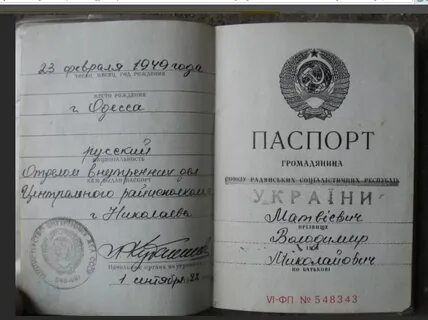 23 февраля 1949 года
ЧИСЛО, МЕСЯЦ, ГОД РОЖДЕНИЯ
МЕСТО РОЖДЕНИЯ
г. Одесса
русский
НАЦИОНАЛЬНОСТЬ
Отделом внутренних дел
КЕМ ВЫДАН ПАСПОРТ
Центрального райисполкома
г. Николаева
1 сентября
ПАСПОРТ
ГРОМАДЯНИНА
СОЮЗУ РАДЯНСЬКИХ СОЦІАЛІСТИЧНИХ РЕСПУБЛІК
УКРАЇНИ
Матвієвич
ПРІЗВИЩЕ
Володимир
ІМ'Я
Миколайович
ПО БАТЬКОВІ
VI-ФП № 548343